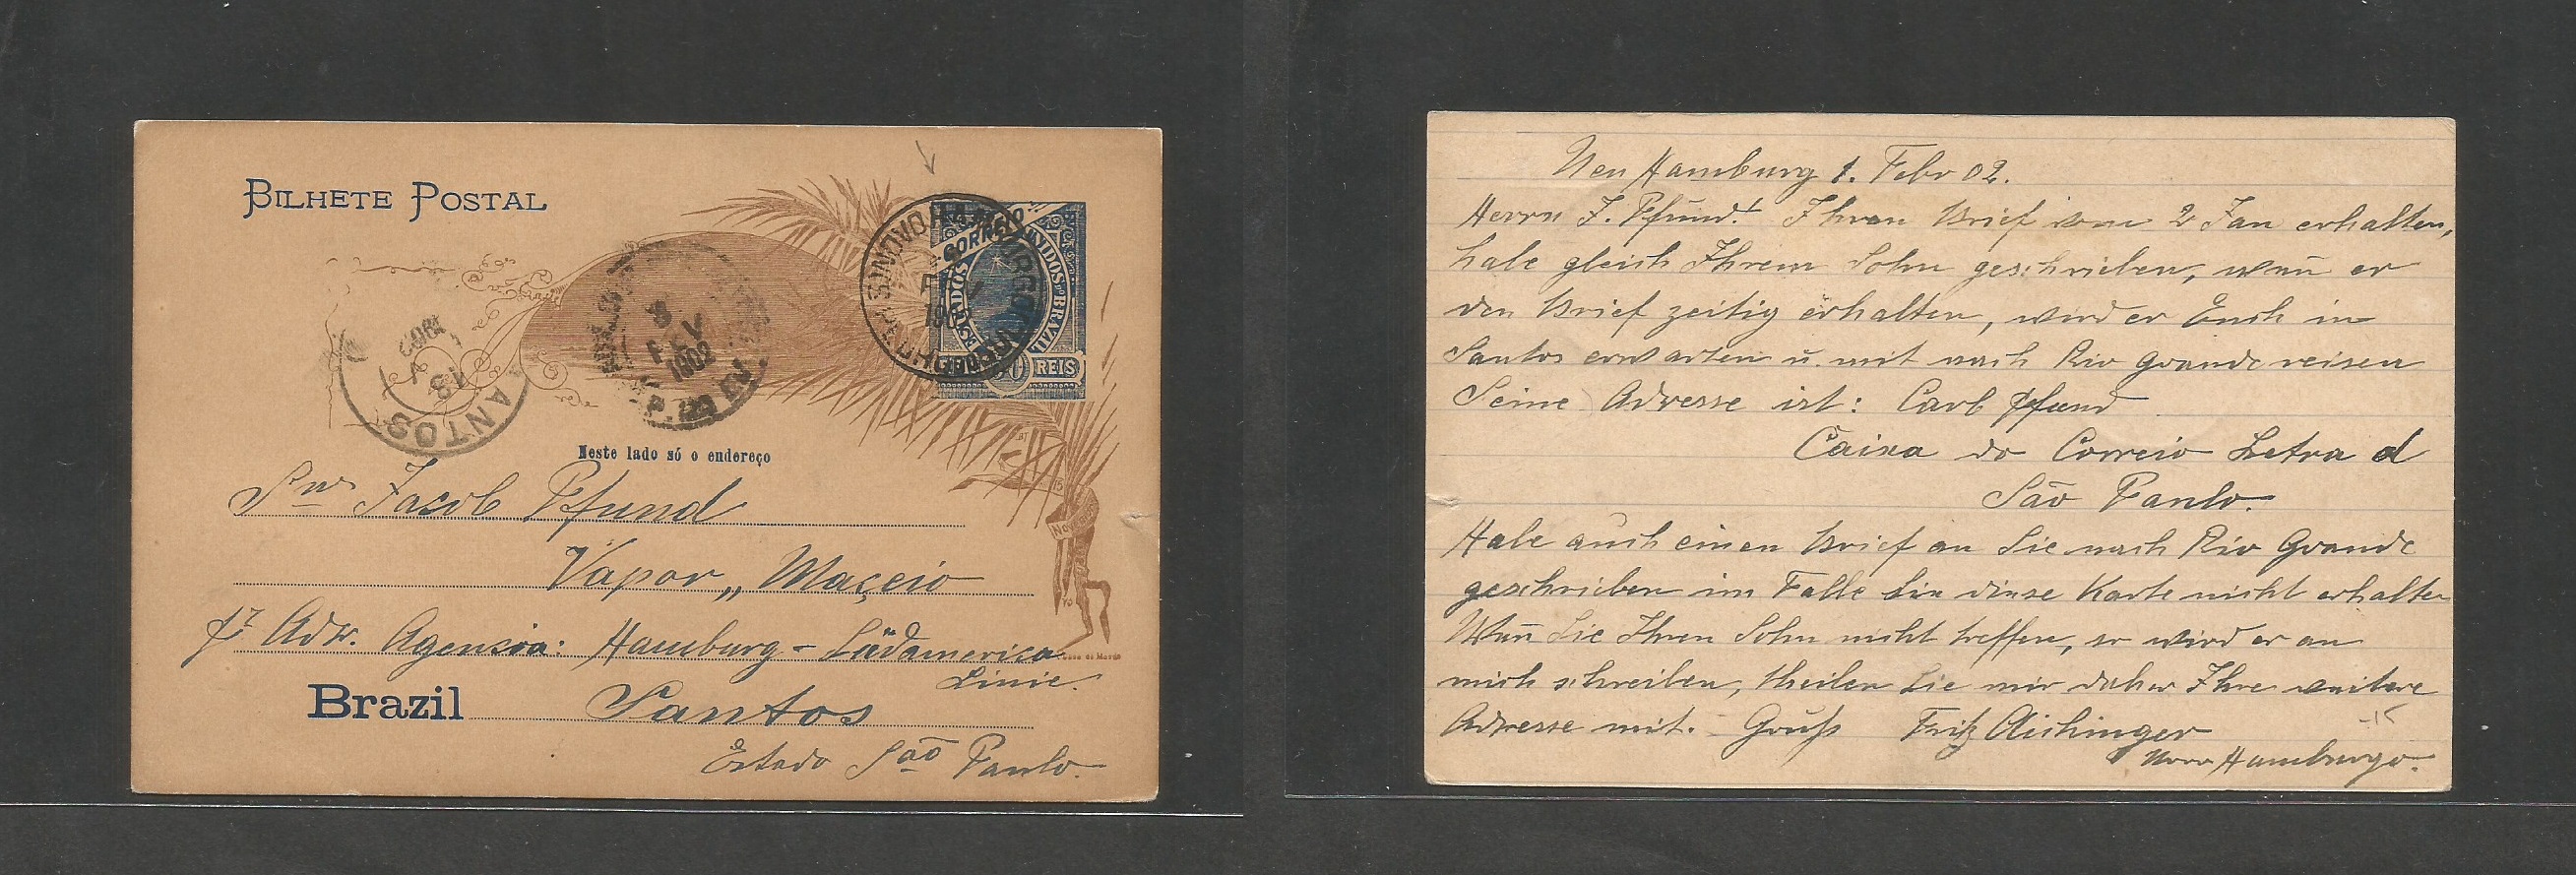 BILHETE POSTAL
CORREIO
ESTADOS UNIDOS DO BRAZIL
REIS
SANTOS
13
5
FEV
1902
Neste lado só o endereço
Snr Jacob Pfund
Vapor „Maçeio
Adr. Agensia: Hamburg-Südamerica
Linie.
Brazil Santos
Estado São Paulo.
Neu Hamburg 1. Febr 02.
Herrn J. Pfund! Ihren Brief vom 2 Jan erhalten,
habe gleich Ihrem Sohn geschrieben, wen̄ er
den Brief zeitig erhalten, wird er Euch in
Santos erwarten u. mit nach Rio Grande reisen
Seine Adresse ist: Carl Pfund
Caixa do Correio Letra d
São Paulo.
Habe auch einen Brief an Sie nach Rio Grande
geschrieben im Falle Sie diese Karte nicht erhalten
Wen̄ Sie Ihren Sohn nicht treffen, so wird er an
mich schreiben, theilen Sie mir daher Ihre weitere
Adresse mit. - Gruß Fritz Aichinger
Novo Hamburgo.